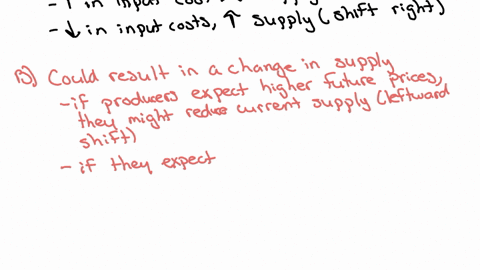 - ↑ in input cos
- ↓ in input costs, ↑ supply (shift right)
B) Could result in a change in supply
- if producers expect higher future prices,
they might reduce current supply (leftward
shift)
- if they expect